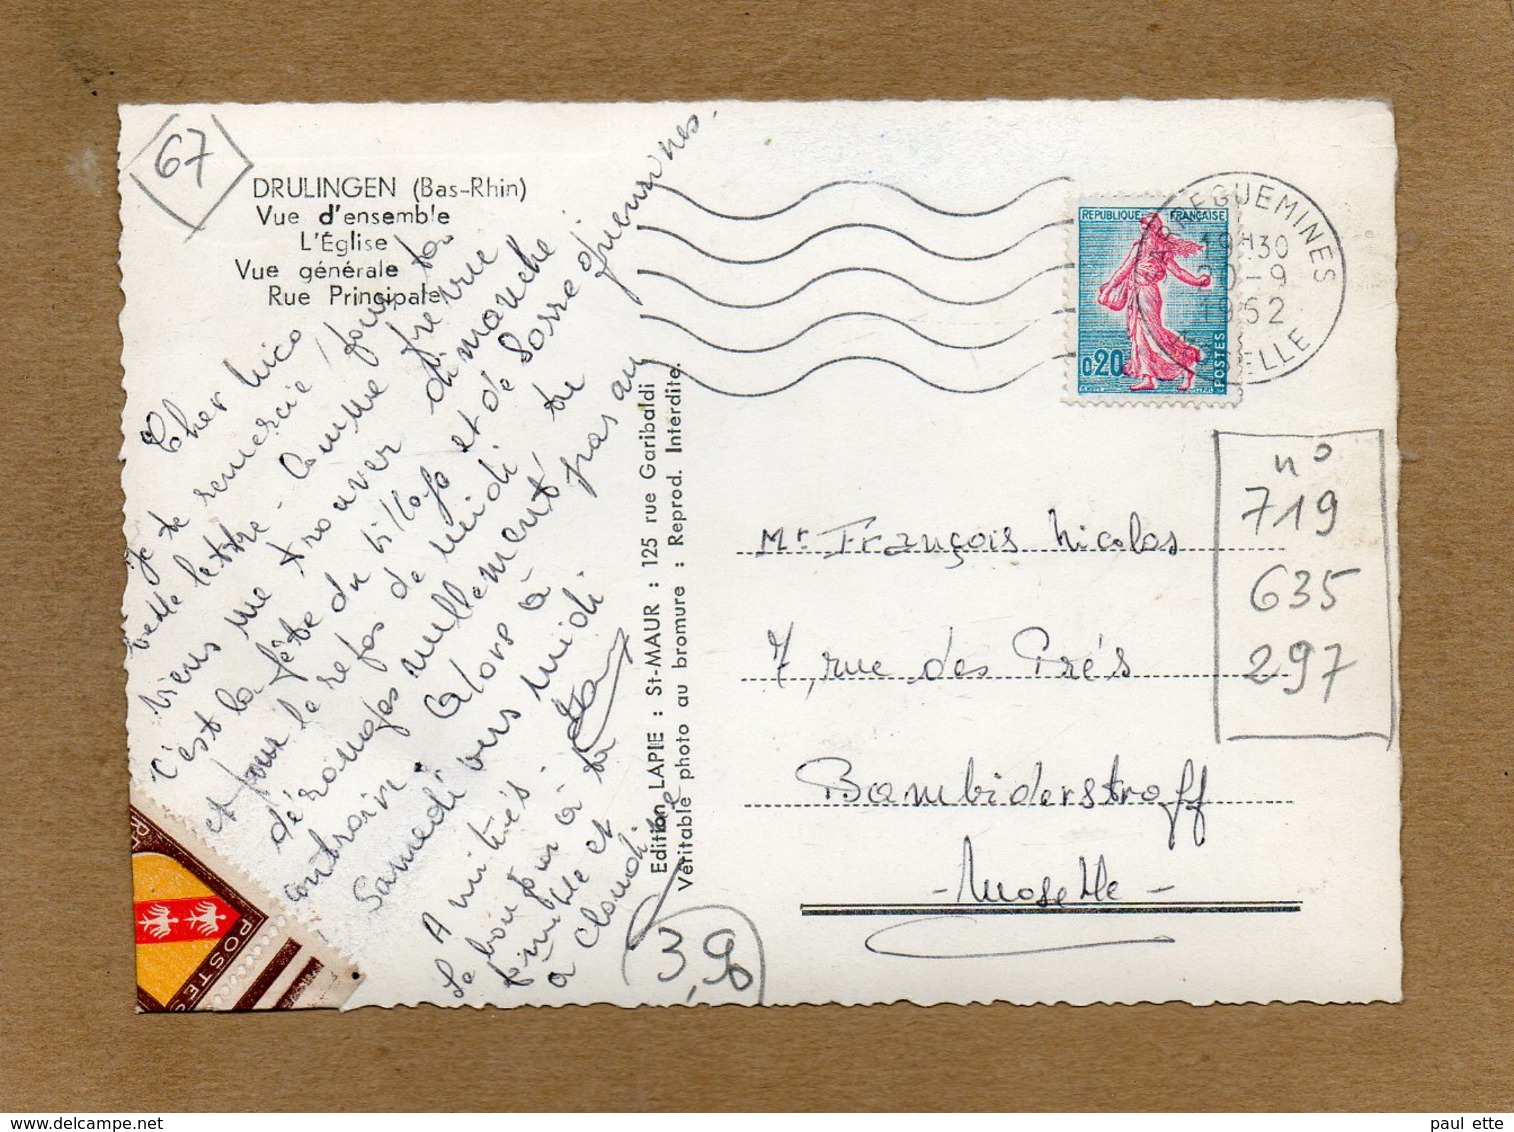 67
DRULINGEN (Bas-Rhin)
Vue d'ensemble
L'Église
Vue générale
Rue Principale
Cher Nico
je te remercie, pour ta
belle lettre - Comme prévue
viens me trouver dimanche
c'est la fête du village et de Sarreguemines.
et pour le repas de midi, tu
déranges nullement, pas au
contraire. Alors à
Samedi vers midi
Amitiés.
Le bonjour à ta
famille et
à Claudine
Edition LAPIE : St-MAUR : 125 rue Garibaldi
Véritable photo au bromure : Reprod. Interdite.
3,90
REPUBLIQUE FRANÇAISE
0,20
POSTES
SARREGUEMINES
19H30
20-9
1962
MOSELLE
n°
719
635
297
Mr. François Nicolas
7, rue des Prés
Bambiderstroff
- Moselle -
POSTES
paul ette